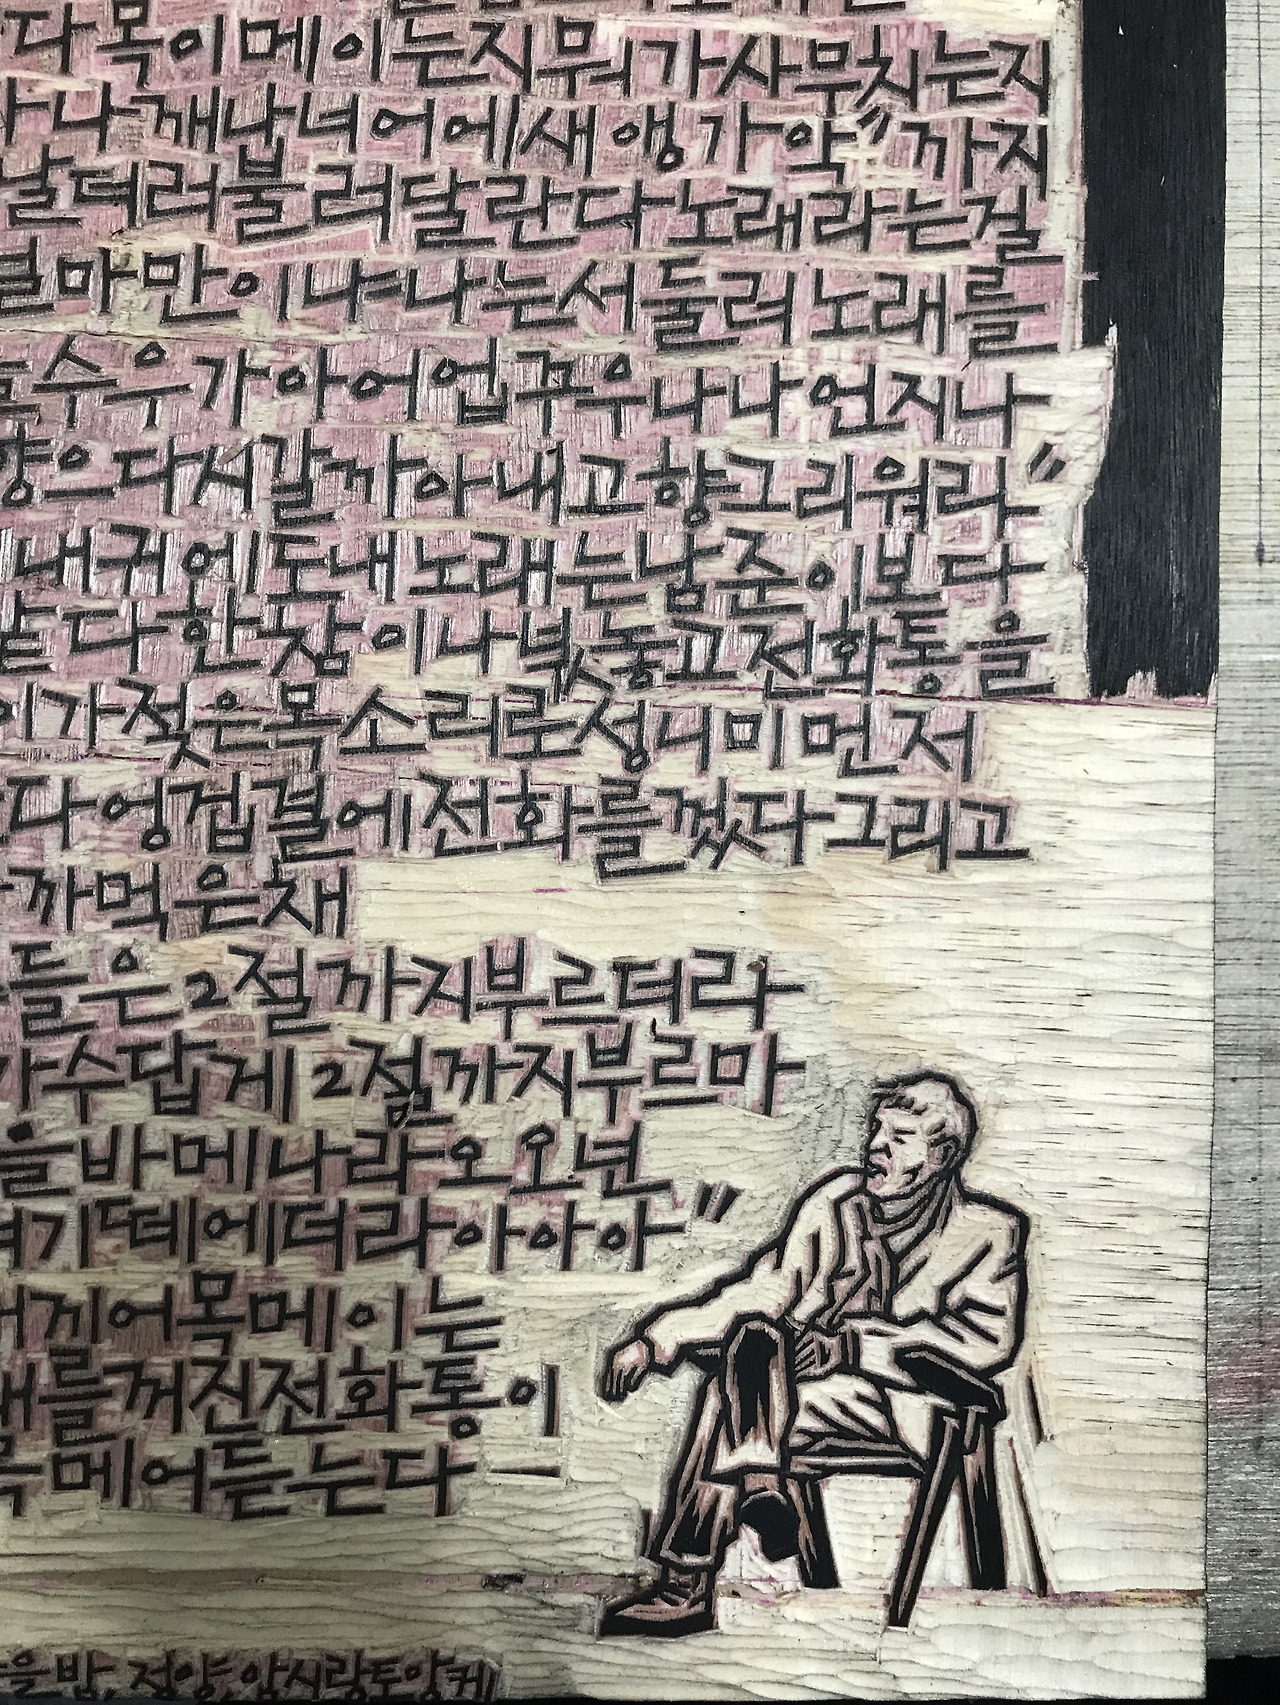 다목이메이는지뭐가사무치는지
나깨나녀어에새앵가악"까지
날더러불러달란다노래라는걸
얼마만이냐나는서둘러노래를
수우가아어업꾸우나나언지나
향으다시갈까아내고향그리워라"
내귀에도내노래는남준이보다
같다한참이나넋놓고전화통을
이가젖은목소리로정니미먼저
다엉겁결에전화를껐다그리고
까먹은채
들은2절까지부르더라
가수답게2절까지부르마
을바메나라오오년
여기떼에더라아아아"
끼어목메이는
를꺼진전화통이
메어듣는다
을밤, 정양, 암시랑토앙케